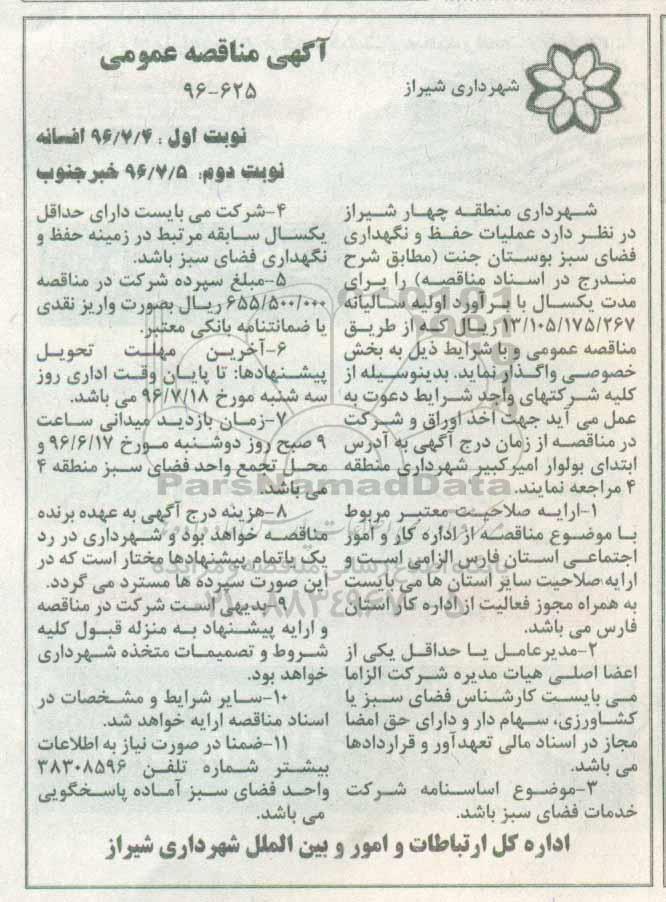 آگهی مناقصه عمومی
۹۶-۶۲۵
شهرداری شیراز
نوبت اول : ۹۶/۷/۴ افسانه
نوبت دوم: ۹۶/۷/۵ خبر جنوب
شهرداری منطقه چهار شیراز
در نظر دارد عملیات حفظ و نگهداری
فضای سبز بوستان جنت (مطابق شرح
مندرج در اسناد مناقصه) را برای
مدت یکسال با برآورد اولیه سالیانه
۱۳/۱۰۵/۱۷۵/۲۶۷ ریال که از طریق
مناقصه عمومی و با شرایط ذیل به بخش
خصوصی واگذار نماید. بدینوسیله از
کلیه شرکتهای واجد شرایط دعوت به
عمل می آید جهت اخذ اوراق و شرکت
در مناقصه از زمان درج آگهی به آدرس
ابتدای بولوار امیرکبیر شهرداری منطقه
۴ مراجعه نمایند.
۱-ارایه صلاحیت معتبر مربوط
با موضوع مناقصه از اداره کار و امور
اجتماعی استان فارس الزامی است و
ارایه صلاحیت سایر استان ها می بایست
به همراه مجوز فعالیت از اداره کار استان
فارس می باشد.
۲-مدیرعامل یا حداقل یکی از
اعضا اصلی هیات مدیره شرکت الزاما
می بایست کارشناس فضای سبز یا
کشاورزی، سهام دار و دارای حق امضا
مجاز در اسناد مالی تعهدآور و قراردادها
می باشد.
۳-موضوع اساسنامه شرکت
خدمات فضای سبز باشد.
۴-شرکت می بایست دارای حداقل
یکسال سابقه مرتبط در زمینه حفظ و
نگهداری فضای سبز باشد.
۵-مبلغ سپرده شرکت در مناقصه
۶۵۵/۵۰۰/۰۰۰ ریال بصورت واریز نقدی
یا ضمانتنامه بانکی معتبر.
۶-آخرین مهلت تحویل
پیشنهادها: تا پایان وقت اداری روز
سه شنبه مورخ ۹۶/۷/۱۸ می باشد.
۷-زمان بازدید میدانی ساعت
۹ صبح روز دوشنبه مورخ ۹۶/۶/۱۷ و
محل تجمع واحد فضای سبز منطقه ۴
می باشد.
۸-هزینه درج آگهی به عهده برنده
مناقصه خواهد بود و شهرداری در رد
یک یاتمام پیشنهادها مختار است که در
این صورت سپرده ها مسترد می گردد.
۹-بدیهی است شرکت در مناقصه
و ارایه پیشنهاد به منزله قبول کلیه
شروط و تصمیمات متخذه شهرداری
خواهد بود.
۱۰-سایر شرایط و مشخصات در
اسناد مناقصه ارایه خواهد شد.
۱۱-ضمنا در صورت نیاز به اطلاعات
بیشتر شماره تلفن ۳۸۳۰۸۵۹۶
واحد فضای سبز آماده پاسخگویی
می باشد.
اداره کل ارتباطات و امور و بین الملل شهرداری شیراز
ParsNamadData